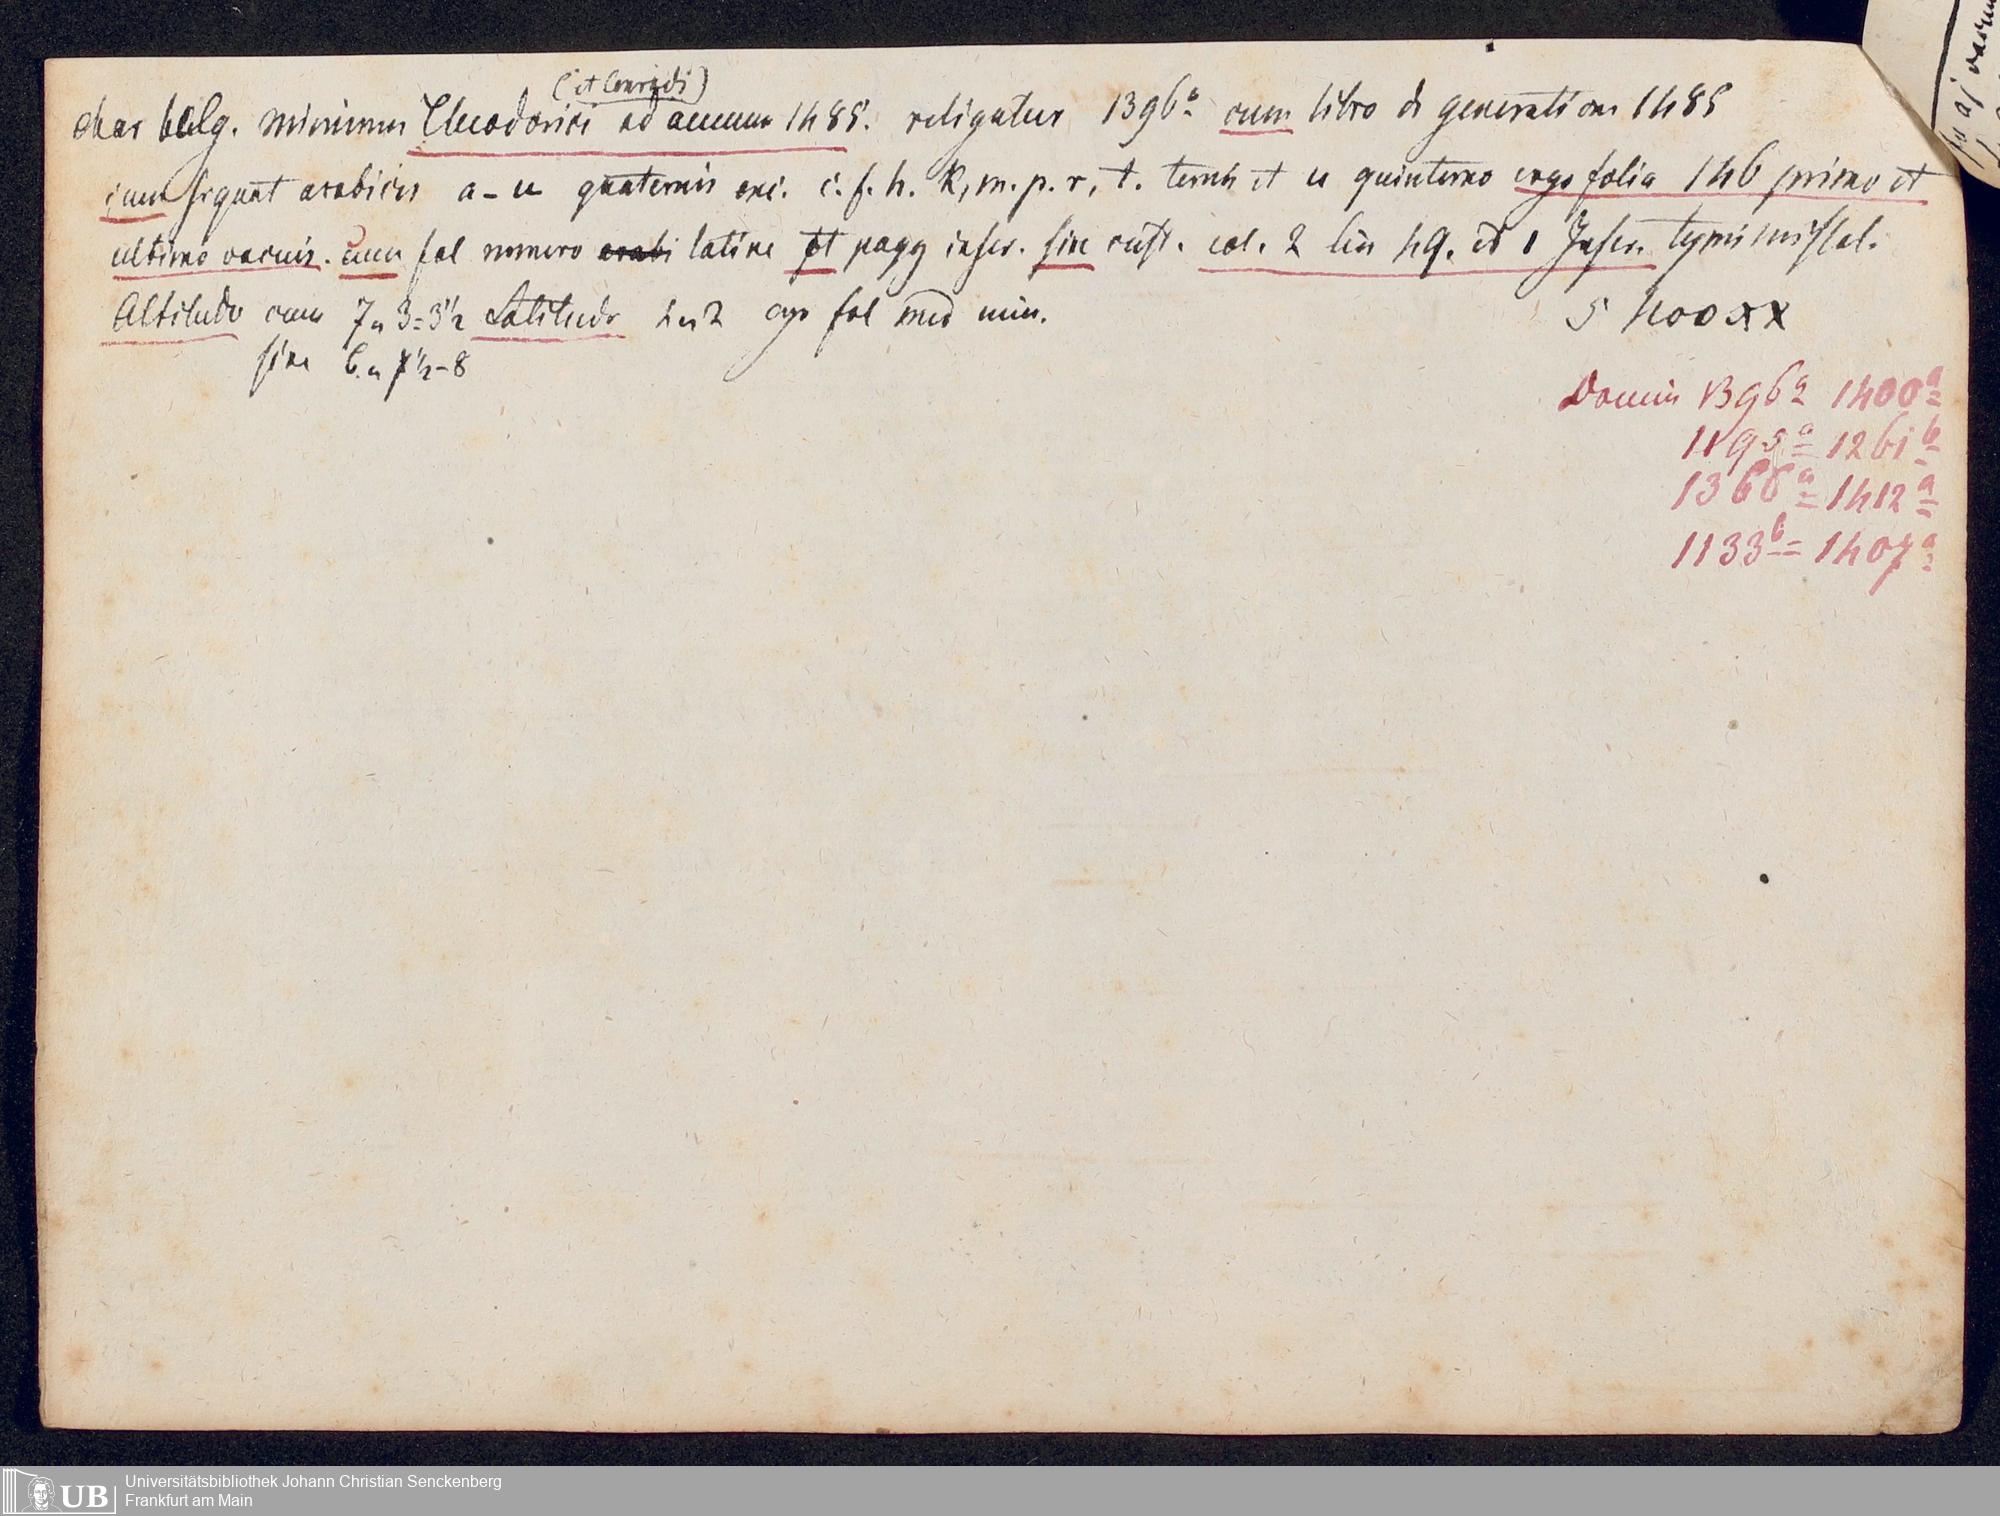 (et Conradi)
char belg. minimus Theodorici ad annum 1485. religatur 1396a cum libro de generatione 1485
cum signat arabicis a-u quaternis exc. c. f. h. k, m. p. r, t. ternis et u quinterno ergo folia 146 primo et
ultimo vacuis. cum fol numero arabi latine et pagg inscr. sine cust. col. 2 lin 49. et 1 Inscr. typis missal.
Altitudo cum 7 u 3=3½ Latitudo 4 u 2 ergo fol med min.
5 400 xx
sine 6. u 7½-8
Domin 1396a 1400a
1195a 1261b
1366a = 1412a
1133b = 1407a
Universitätsbibliothek Johann Christian Senckenberg
UB
Frankfurt am Main